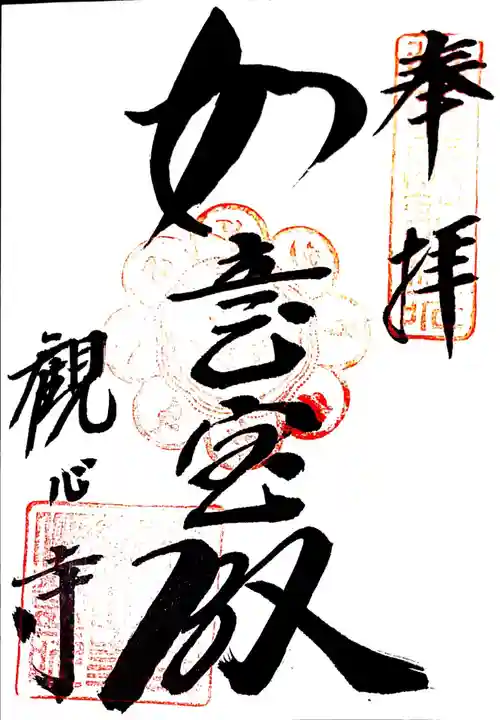 奉拝
如意宝殿
観心寺